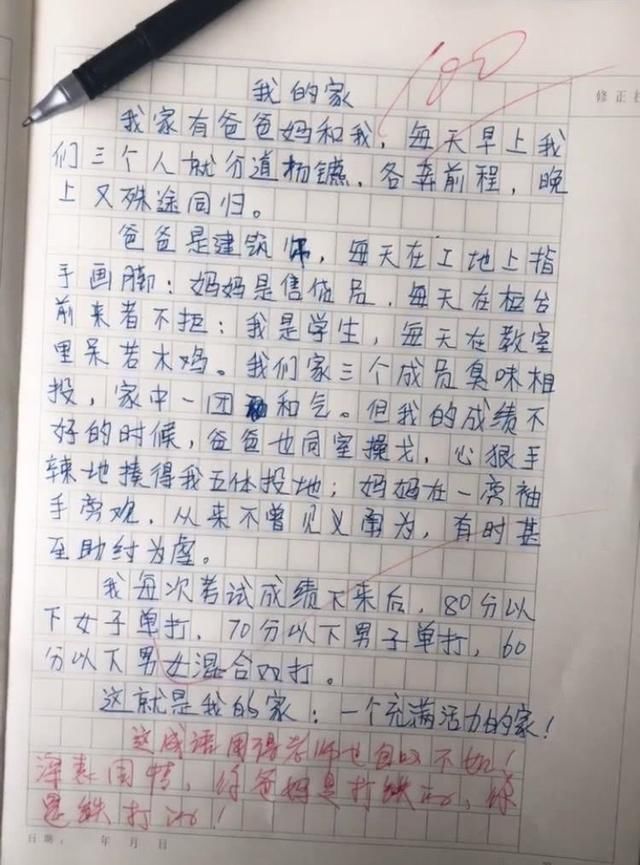 100
我的家
修正栏
我家有爸爸妈和我，每天早上我
们三个人就分道扬镳，各奔前程，晚
上又殊途同归。
爸爸是建筑师，每天在工地上指
手画脚；妈妈是售货员，每天在柜台
前来者不拒；我是学生，每天在教室
里呆若木鸡。我们家三个成员臭味相
投，家中一团和气。但我的成绩不
好的时候，爸爸也同室操戈，心狠手
辣地揍得我五体投地；妈妈在一旁袖
手旁观，从来不曾见义勇为，有时甚
至助纣为虐。
我每次考试成绩下来后，80分以
下女子单打，70分以下男子单打，60
分以下男女混合双打。
这就是我的家：一个充满活力的家！
这成语用得老师也自叹不如！
深表同情，你爸妈是打铁的，你
是铁打的！
日期： 年 月 日